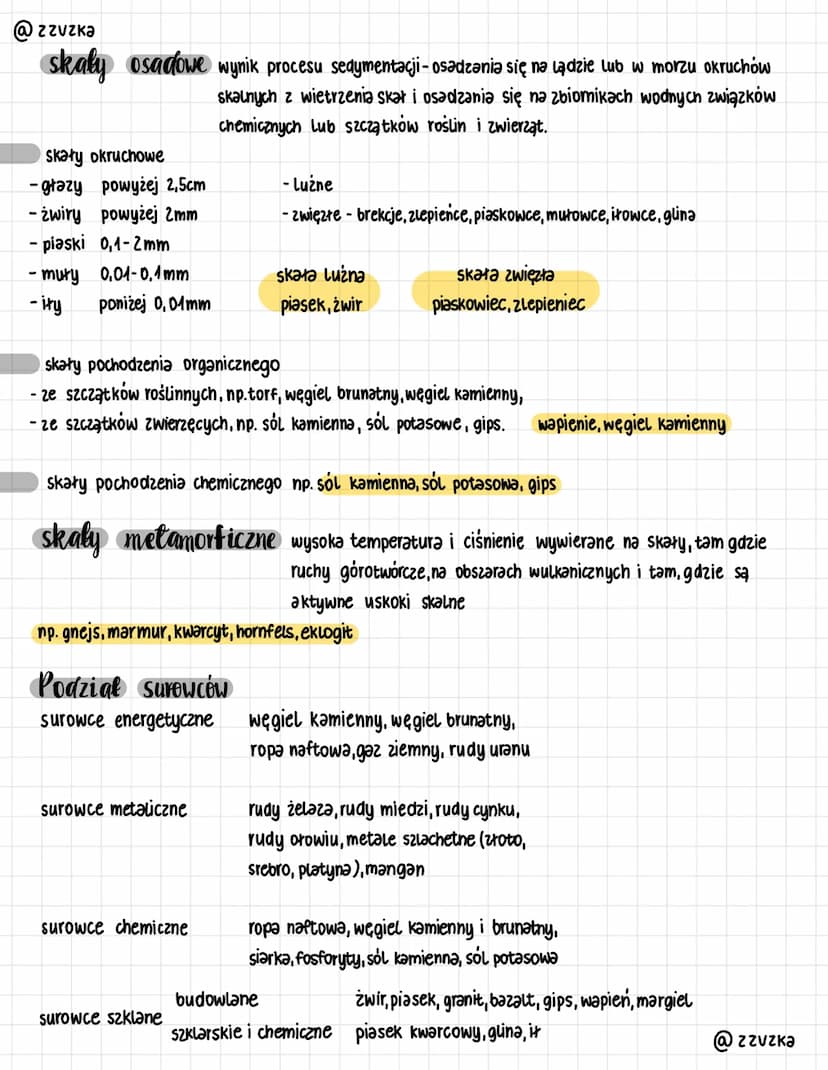 @zzuzka
skały osadowe wynik procesu sedymentacji-osadzania się na lądzie lub w morzu okruchów
skalnych z wietrzenia skał i osadzania się na zbiornikach wodnych związków
chemicznych lub szczątków roślin i zwierząt.
skały okruchowe
-głazy powyżej 2,5cm - luźne
- żwiry powyżej 2mm - zwięzłe - brekcje, zlepieńce, piaskowce, mułowce, iłowce, glina
- piaski 0,1-2mm
- muły 0,01-0,1mm skała luźna skała zwięzła
- iły poniżej 0,01mm piasek, żwir piaskowiec, zlepieniec
skały pochodzenia organicznego
- ze szczątków roślinnych, np. torf, węgiel brunatny, węgiel kamienny,
- ze szczątków zwierzęcych, np. sól kamienna, sól potasowe, gips. wapienie, węgiel kamienny
skały pochodzenia chemicznego np. sól kamienna, sól potasowa, gips
skały metamorficzne wysoka temperatura i ciśnienie wywierane na skały, tam gdzie
ruchy górotwórcze, na obszarach wulkanicznych i tam, gdzie są
aktywne uskoki skalne
np. gnejs, marmur, kwarcyt, hornfels, eklogit
Podział surowców
surowce energetyczne węgiel kamienny, węgiel brunatny,
ropa naftowa, gaz ziemny, rudy uranu
surowce metaliczne rudy żelaza, rudy miedzi, rudy cynku,
rudy ołowiu, metale szlachetne (złoto,
srebro, platyna), mangan
surowce chemiczne ropa naftowa, węgiel kamienny i brunatny,
siarka, fosforyty, sól kamienna, sól potasowa
budowlane żwir, piasek, granit, bazalt, gips, wapień, margiel
surowce szklane
szklarskie i chemiczne piasek kwarcowy, glina, ił
@zzuzka